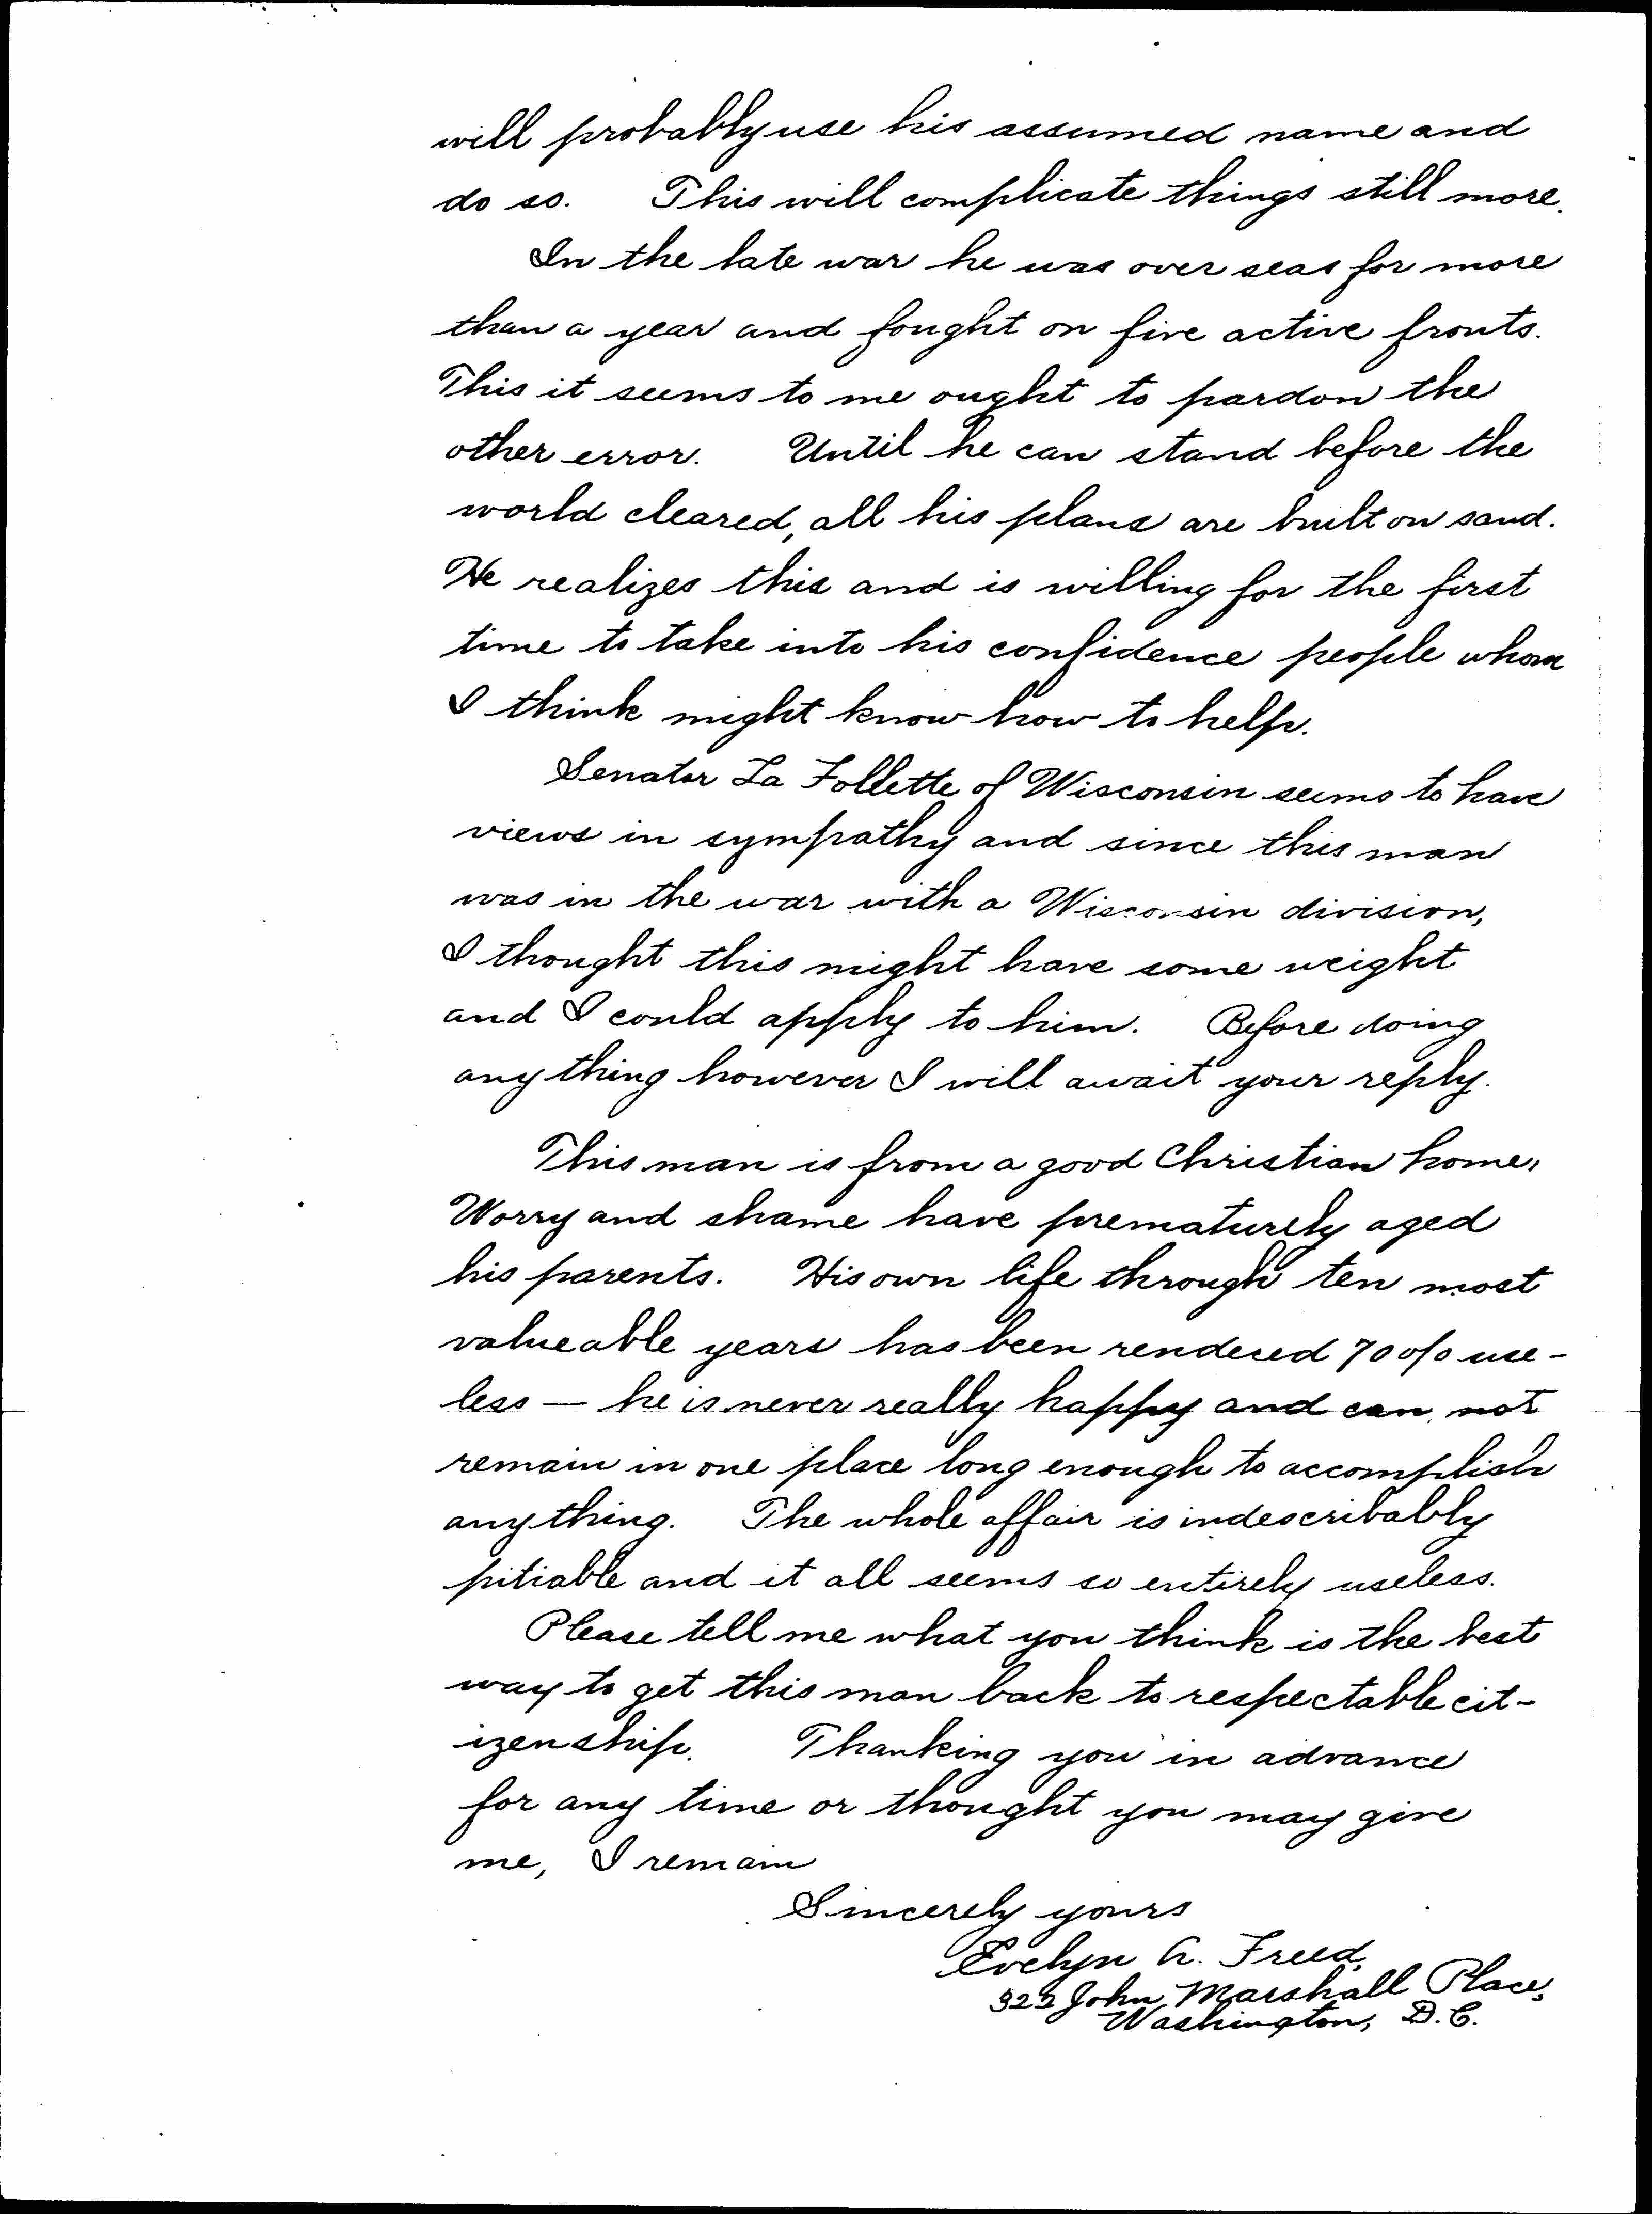 will probably use his assumed name and
do so. This will complicate things still more.
In the late war he was over seas for more
than a year and fought on five active fronts.
This it seems to me ought to pardon the
other error. Until he can stand before the
world cleared, all his plans are built on sand.
He realizes this and is willing for the first
time to take into his confidence people whom
I think might know how to help.
Senator La Follette of Wisconsin seems to have
views in sympathy and since this man
was in the war with a Wisconsin division,
I thought this might have some weight
and I could apply to him. Before doing
any thing however I will await your reply.
This man is from a good Christian home.
Worry and shame have prematurely aged
his parents. His own life through ten most
valueable years has been rendered 70% use-
less — he is never really happy and can not
remain in one place long enough to accomplish
any thing. The whole affair is indescribably
pitiable and it all seems so entirely useless.
Please tell me what you think is the best
way to get this man back to respectable cit-
izenship. Thanking you in advance
for any time or thought you may give
me, I remain
Sincerely yours
Evelyn A. Freed,
322 John Marshall Place,
Washington, D.C.